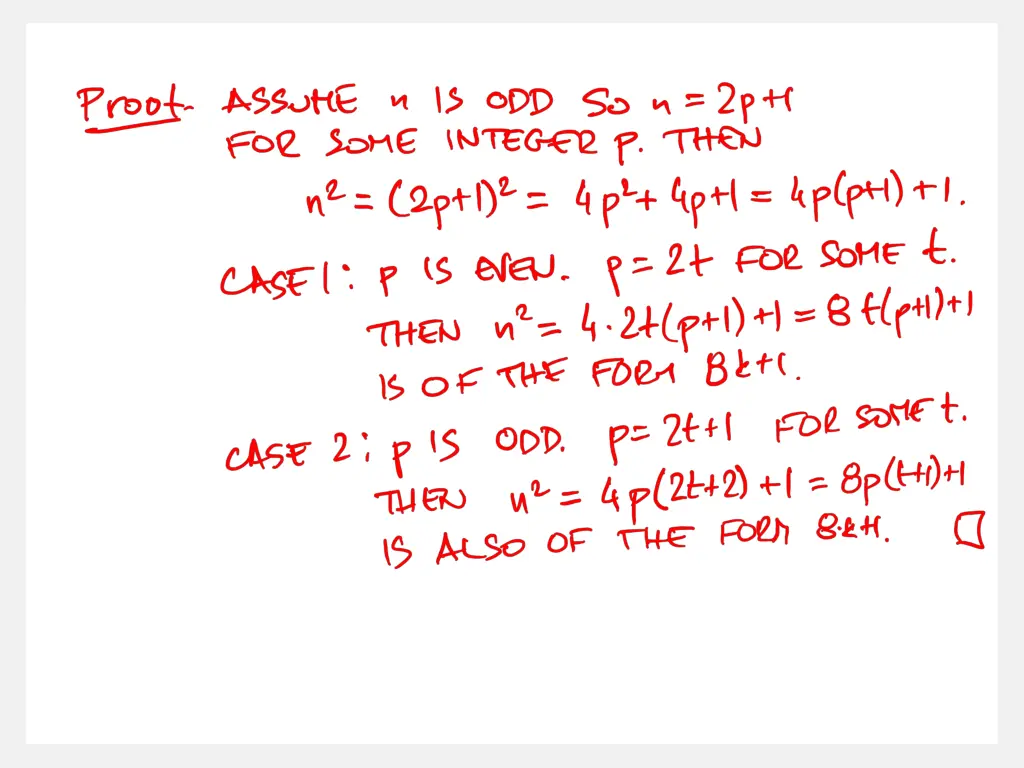 Proof. ASSUME n IS ODD SO n = 2p+1
FOR SOME INTEGER p. THEN
n² = (2p+1)² = 4p² + 4p+1 = 4p(p+1) + 1.
CASE 1: p IS EVEN. p = 2t FOR SOME t.
THEN n² = 4·2t(p+1)+1 = 8t(p+1)+1
IS OF THE FORM 8k+1.
CASE 2: p IS ODD. p = 2t+1 FOR SOME t.
THEN n² = 4p(2t+2)+1 = 8p(t+1)+1
IS ALSO OF THE FORM 8·k+1. □